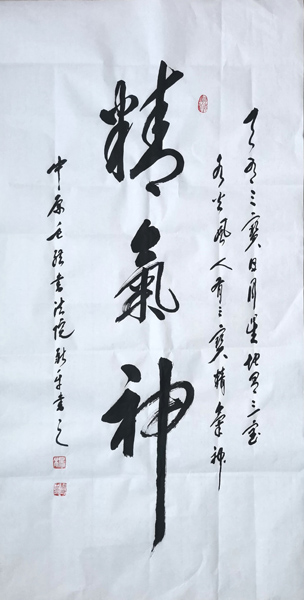 天有三寳日月星地有三宝
水火風人有三寳精氣神
精氣神
中原書法院書之